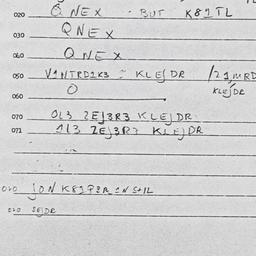 020 QNEX - BUT K81TL
030 QNEX
040 QNEX
050 V1NTRD1K3 = KLEJDR /21MRD
KLEJDR
060 O
070 OL3 ZEJ3R3 KLEJDR
071 1L3 ZEJ3R3 KLEJDR
010 JON
020 SEJDR